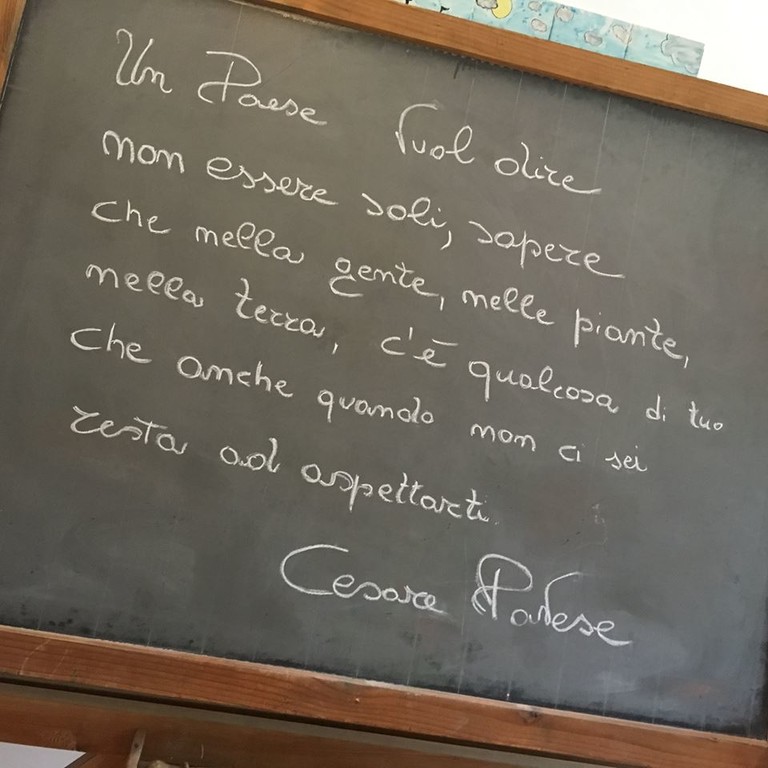 Un Paese vuol dire
non essere soli, sapere
che nella gente, nelle piante,
nella terra, c'è qualcosa di tuo
che anche quando non ci sei
resta ad aspettarti.
Cesare Pavese